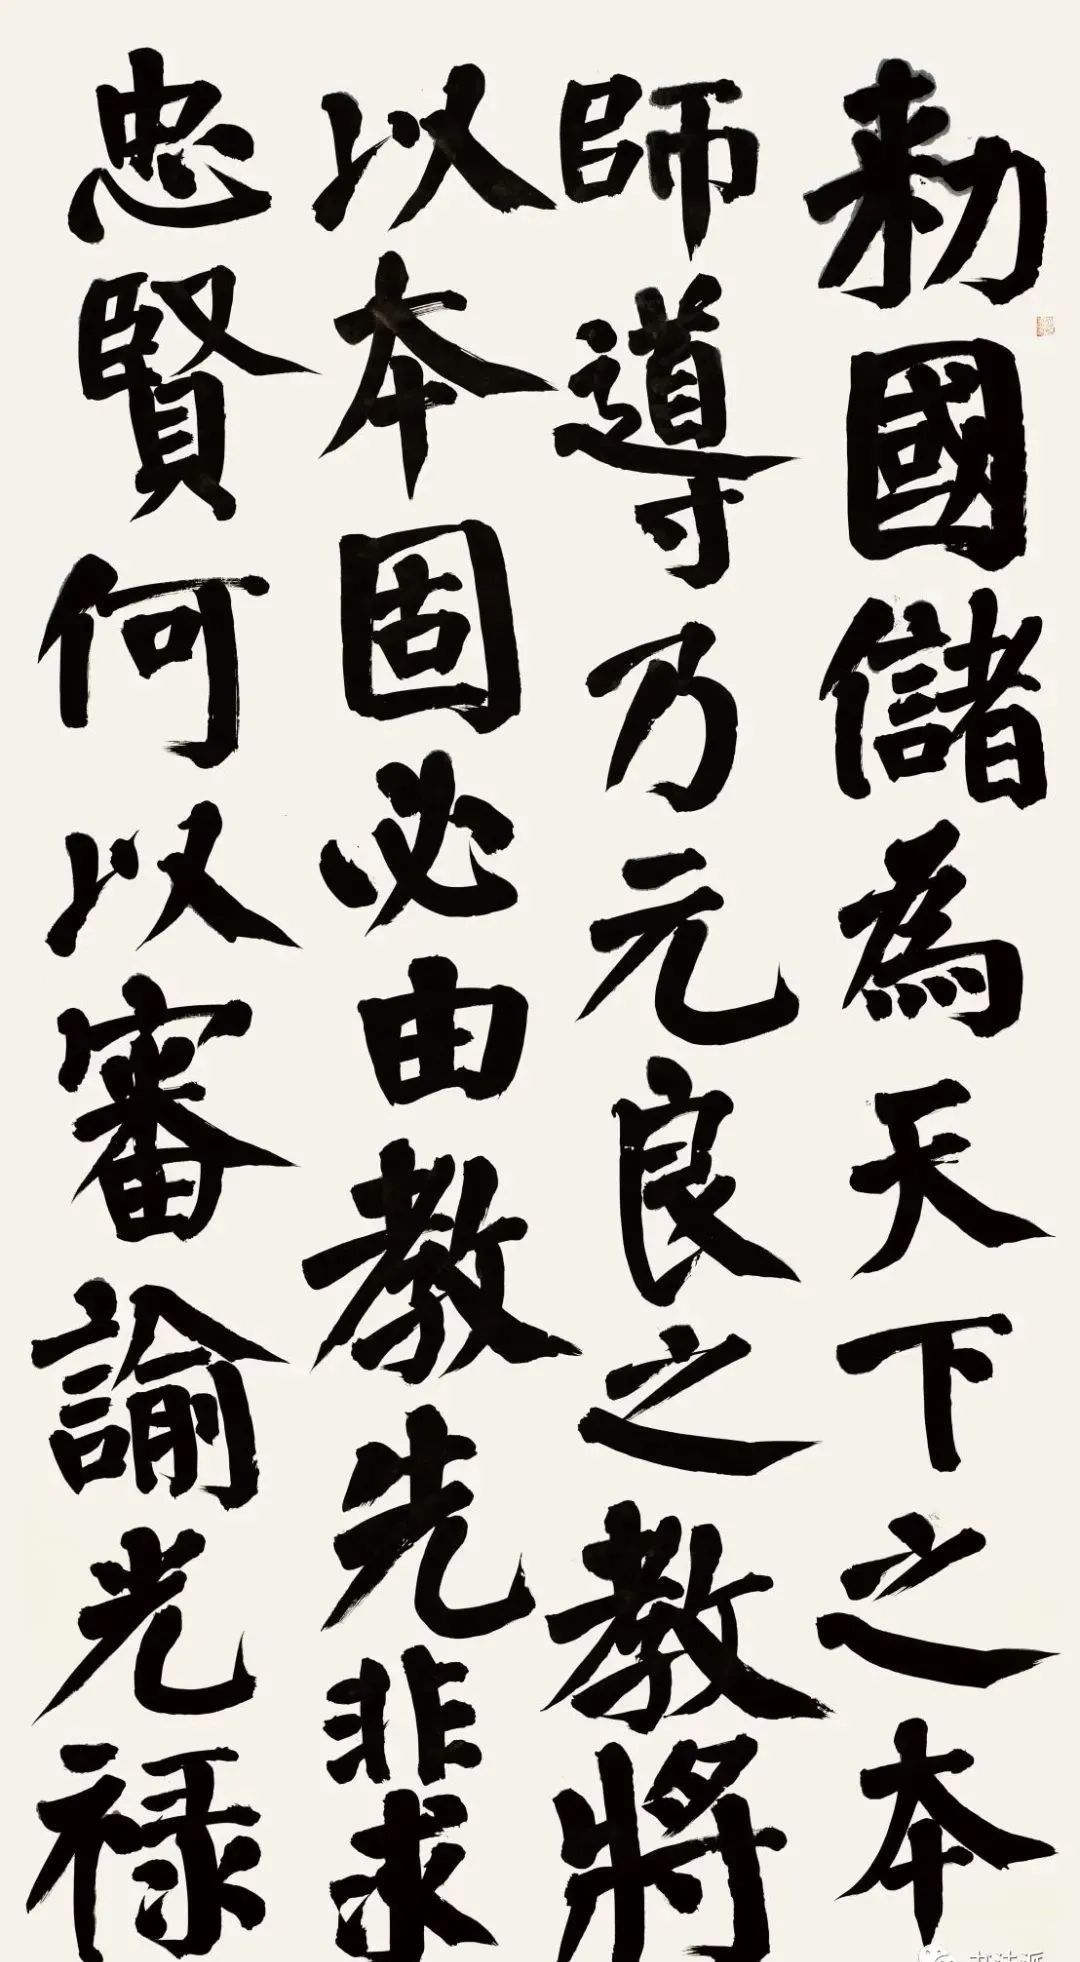 勑國儲為天下之本
師導乃元良之教將
以本固必由教先非求
忠賢何以審諭光禄